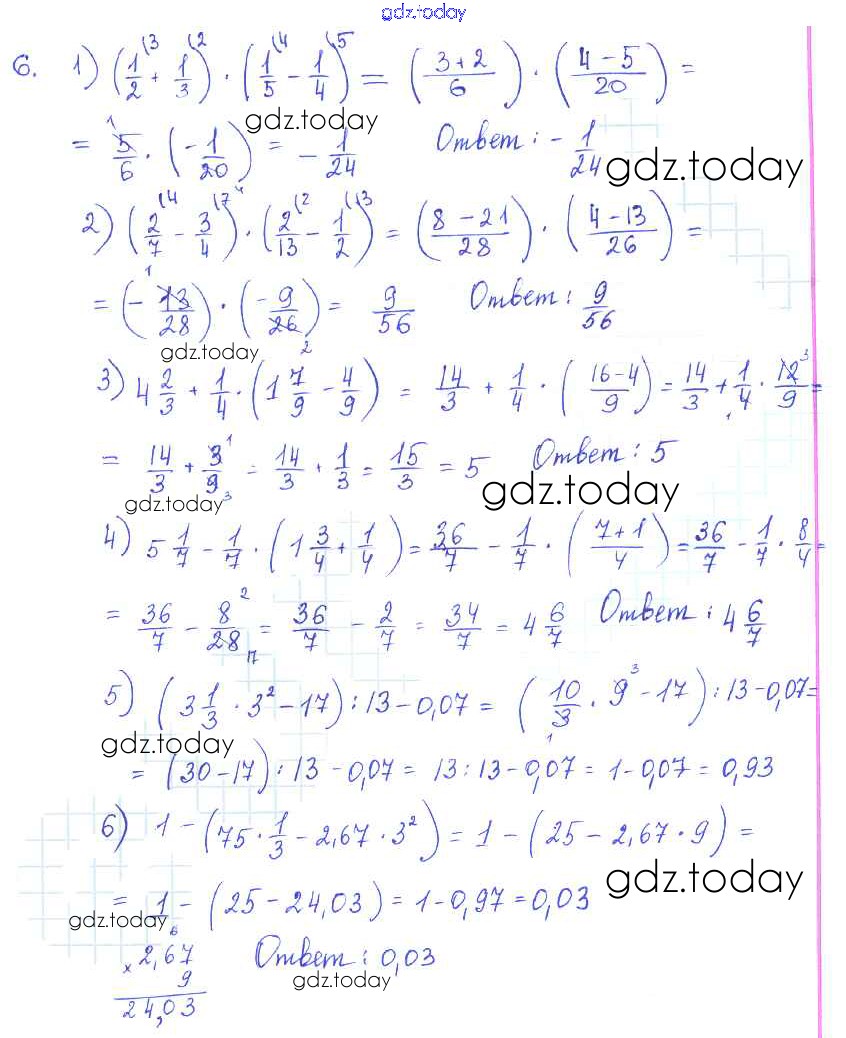 gdz.today
6. 1) (1/2 (3 + 1/3 (2) · (1/5 (4 - 1/4 (5) = ((3+2)/6) · ((4-5)/20) =
gdz.today
= 5/6 · (-1/20) = -1/24 Ответ: -1/24
gdz.today
2) (2/7 (4 - 3/4 (7) · (2/13 (2 - 1/2 (13) = ((8-21)/28) · ((4-13)/26) =
= (-13/28) · (-9/26) = 9/56 Ответ: 9/56
gdz.today
3) 4 2/3 + 1/4 · (1 7/9 - 4/9) = 14/3 + 1/4 · ((16-4)/9) = 14/3 + 1/4 · 12/9 =
= 14/3 + 3/9 = 14/3 + 1/3 = 15/3 = 5 Ответ: 5
gdz.today gdz.today
4) 5 1/7 - 1/7 · (1 3/4 + 1/4) = 36/7 - 1/7 · ((7+1)/4) = 36/7 - 1/7 · 8/4 =
= 36/7 - 8/28 = 36/7 - 2/7 = 34/7 = 4 6/7 Ответ: 4 6/7
5) (3 1/3 · 3² - 17) : 13 - 0,07 = (10/3 · 9 - 17) : 13 - 0,07 =
gdz.today
= (30 - 17) : 13 - 0,07 = 13 : 13 - 0,07 = 1 - 0,07 = 0,93
6) 1 - (75 · 1/3 - 2,67 · 3²) = 1 - (25 - 2,67 · 9) =
gdz.today
= 1 - (25 - 24,03) = 1 - 0,97 = 0,03
gdz.today
× 2,67 Ответ: 0,03
9 gdz.today
24,03